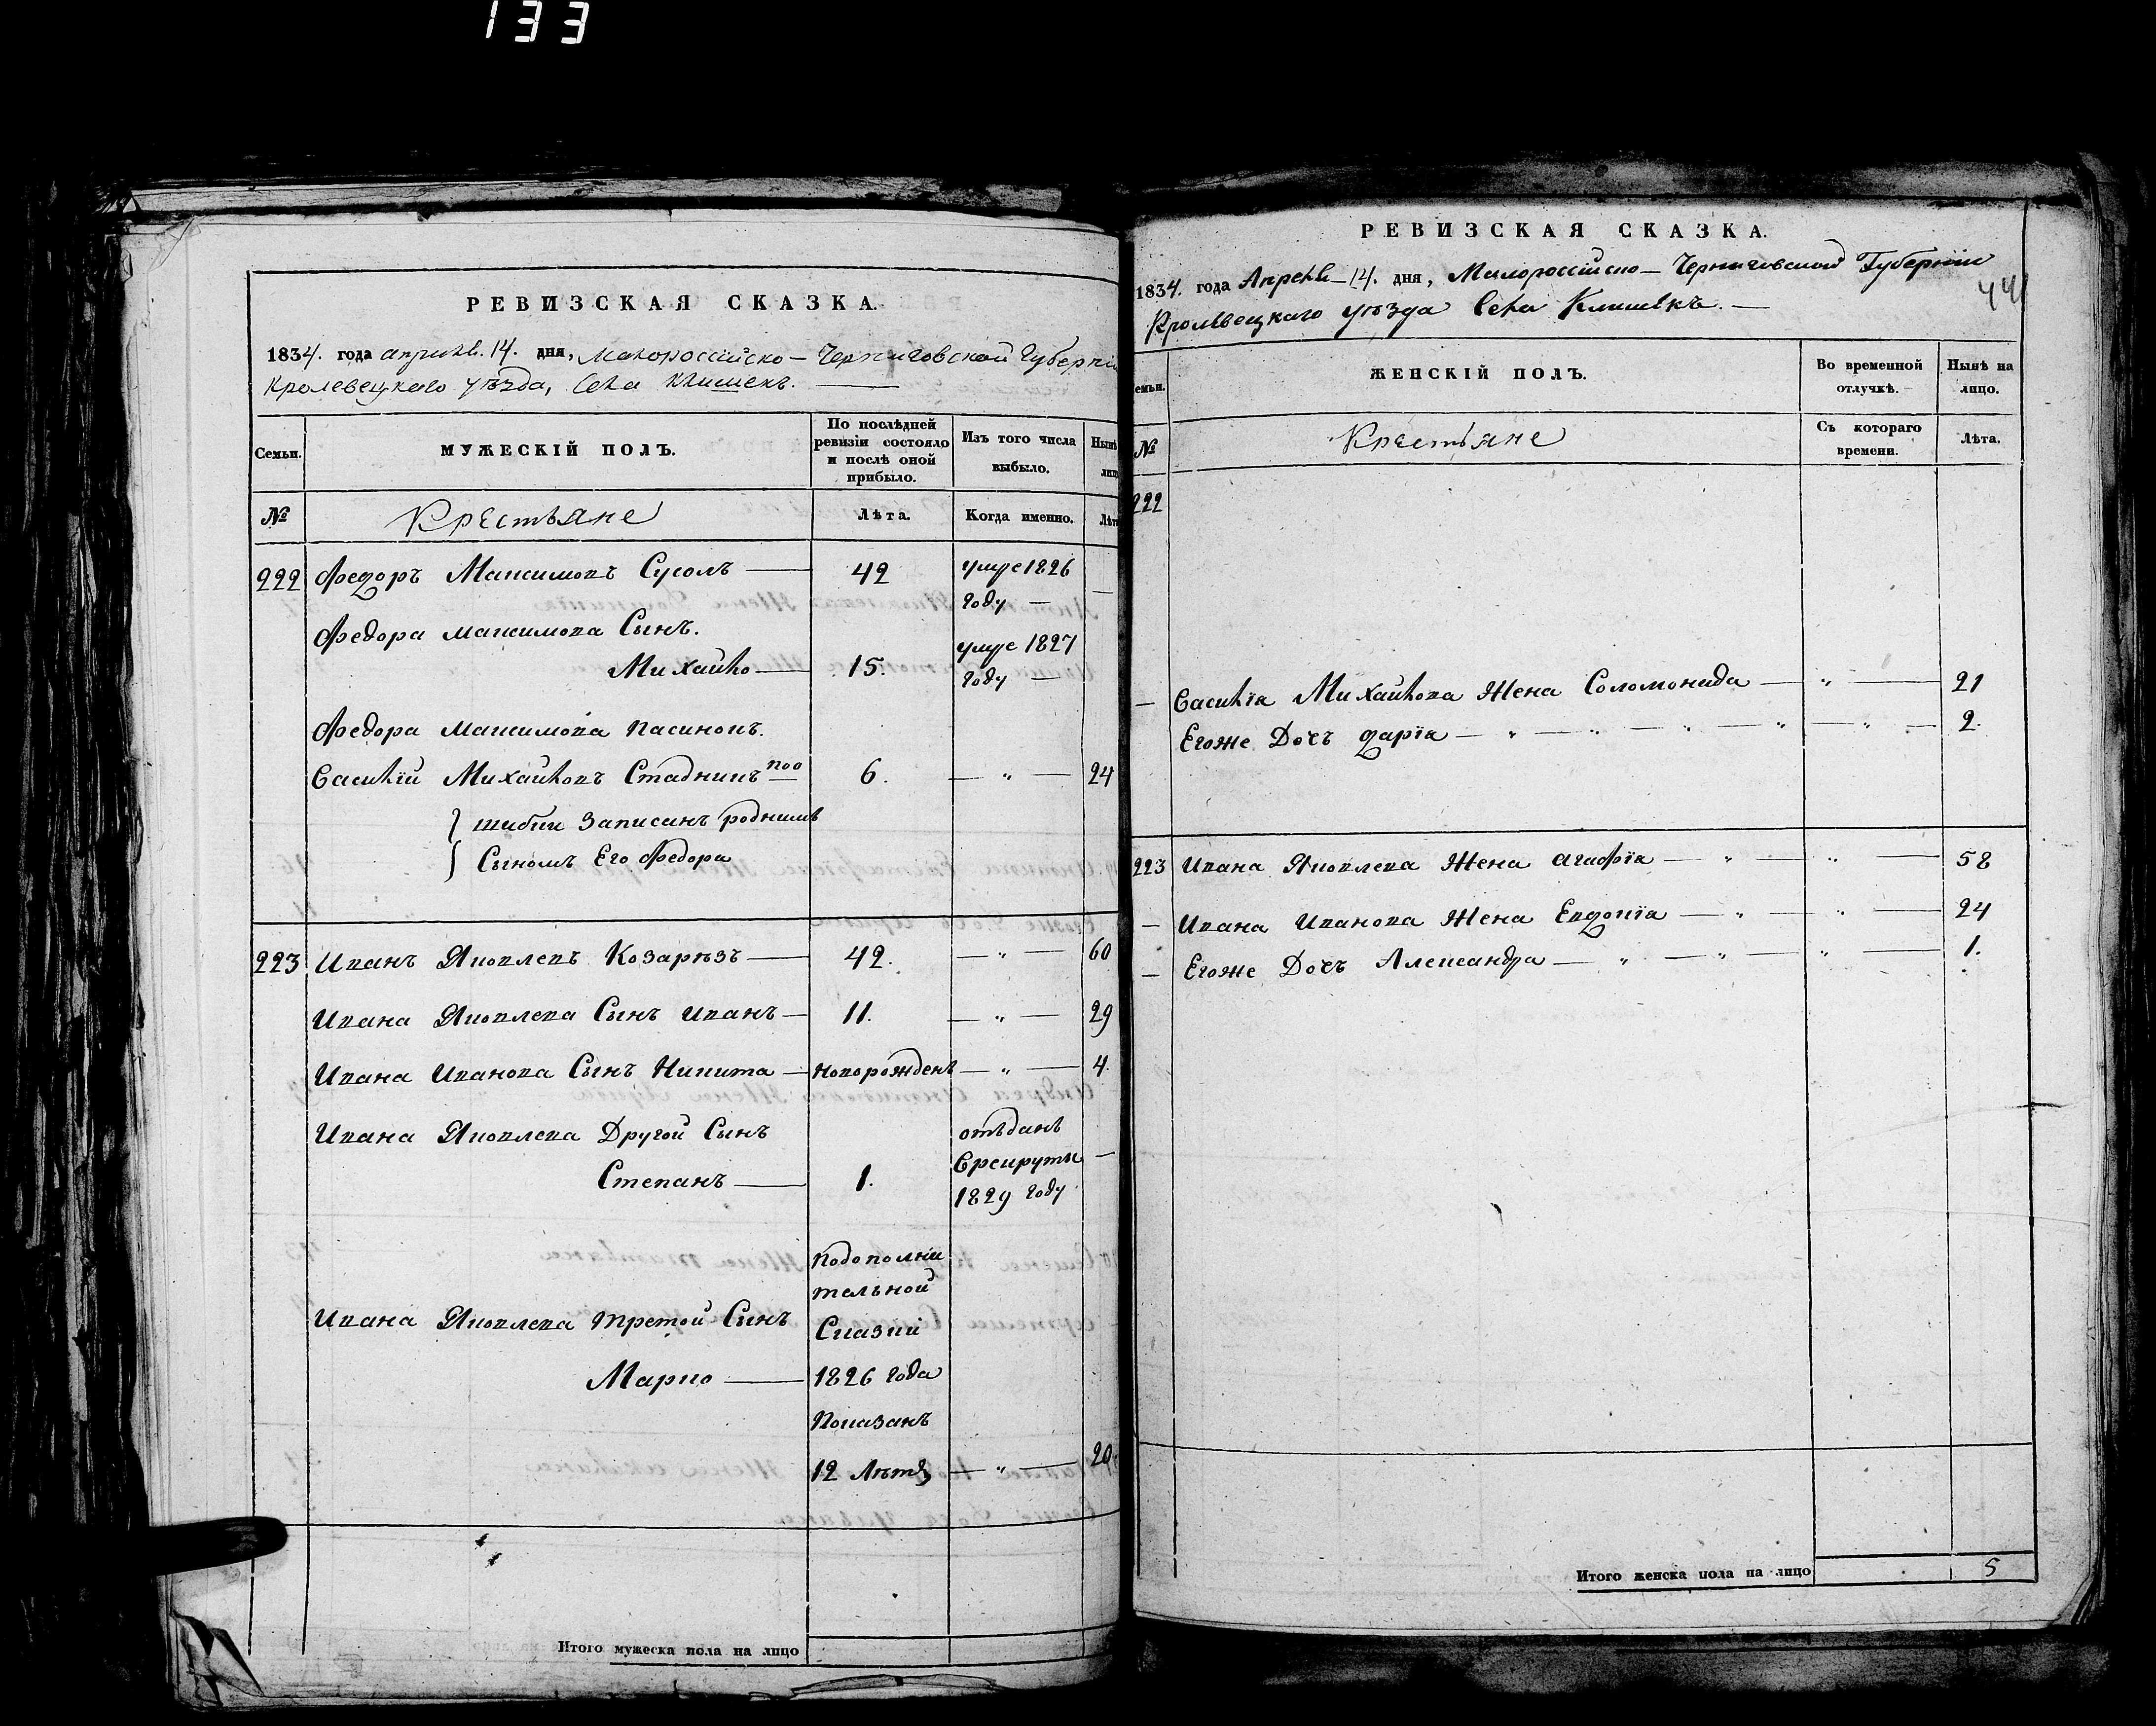 133
РЕВИЗСКАЯ СКАЗКА.
1834. года априля. 14. дня, Малороссійско — Черниговской Губерніи
Кролевецкаго уѣзда, Села Клишекъ. —
Семьи. МУЖЕСКІЙ ПОЛЪ. По послѣдней ревизіи состояло и послѣ оной прибыло. Изъ того числа выбыло. Нынѣ
№ Крестьяне Лѣта. Когда именно. Лѣта
222 Федоръ Максимовъ Сусолъ — 42 умре 1826 —
Году —
Федора Максимова Сынъ. умре 1827
Михайло — 15. Году —
Федора Максимова Пасинокъ.
Василій Михайловъ Стадникъ поо 6. — „ — 24
шибки Записанъ роднимъ
Сыномъ Его Федора
223 Иванъ Яковлевъ Козарѣзъ — 42. — „ — 60
Ивана Яковлева Сынъ Иванъ — 11. — „ — 29
Ивана Иванова Сынъ Никита — новорожденъ — „ — 4.
Ивана Яковлева Другой Сынъ отъданъ
Степанъ — 1. Врекруты —
1829 Году
Подополни
тельной
Ивана Яковлева третой Сынъ Сказки
Марко — 1826 Года
Показанъ
12 Лѣтъ — „ — 20
Итого мужеска пола на лицо
РЕВИЗСКАЯ СКАЗКА.
1834. года Апреля — 14. дня, Малороссійско — Черниговской Губерніи
44
Кролѣвецкаго уѣзда Села Клишекъ. —
емьи. ЖЕНСКІЙ ПОЛЪ. Во временной отлучкѣ. Нынѣ на лицо.
№ Крестьяне Съ котораго времени. Лѣта.
222
— Василія Михайлова Жена Соломонида — „ — 21
Егоже Дочъ Дарія — „ — „ — „ — „ — „ — 2.
223 Ивана Яковлева Жена Агафія — „ — „ — 58
— Ивана Иванова Жена Евдокія — „ — „ — 24
— Егоже Дочъ Александра — „ — „ — „ — 1.
Итого женска пола на лицо 5